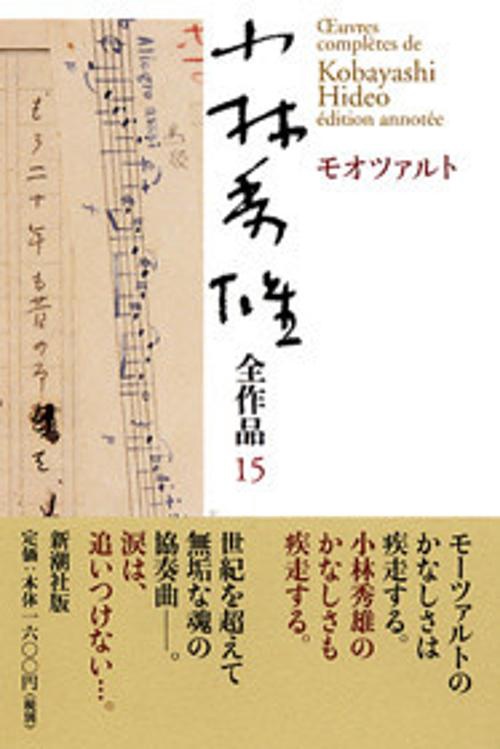 Œuvres
complètes de
Kobayashi
Hideo
édition annotée
モオツァルト
小林秀雄
全作品15
Allegro assai
もう二十年も昔の事を
モーツァルトの
かなしさは
疾走する。
小林秀雄の
かなしさも
疾走する。
世紀を超えて
無垢な魂の
協奏曲――。
涙は、
追いつけない…。
新潮社版
定価：本体一六〇〇円（税別）